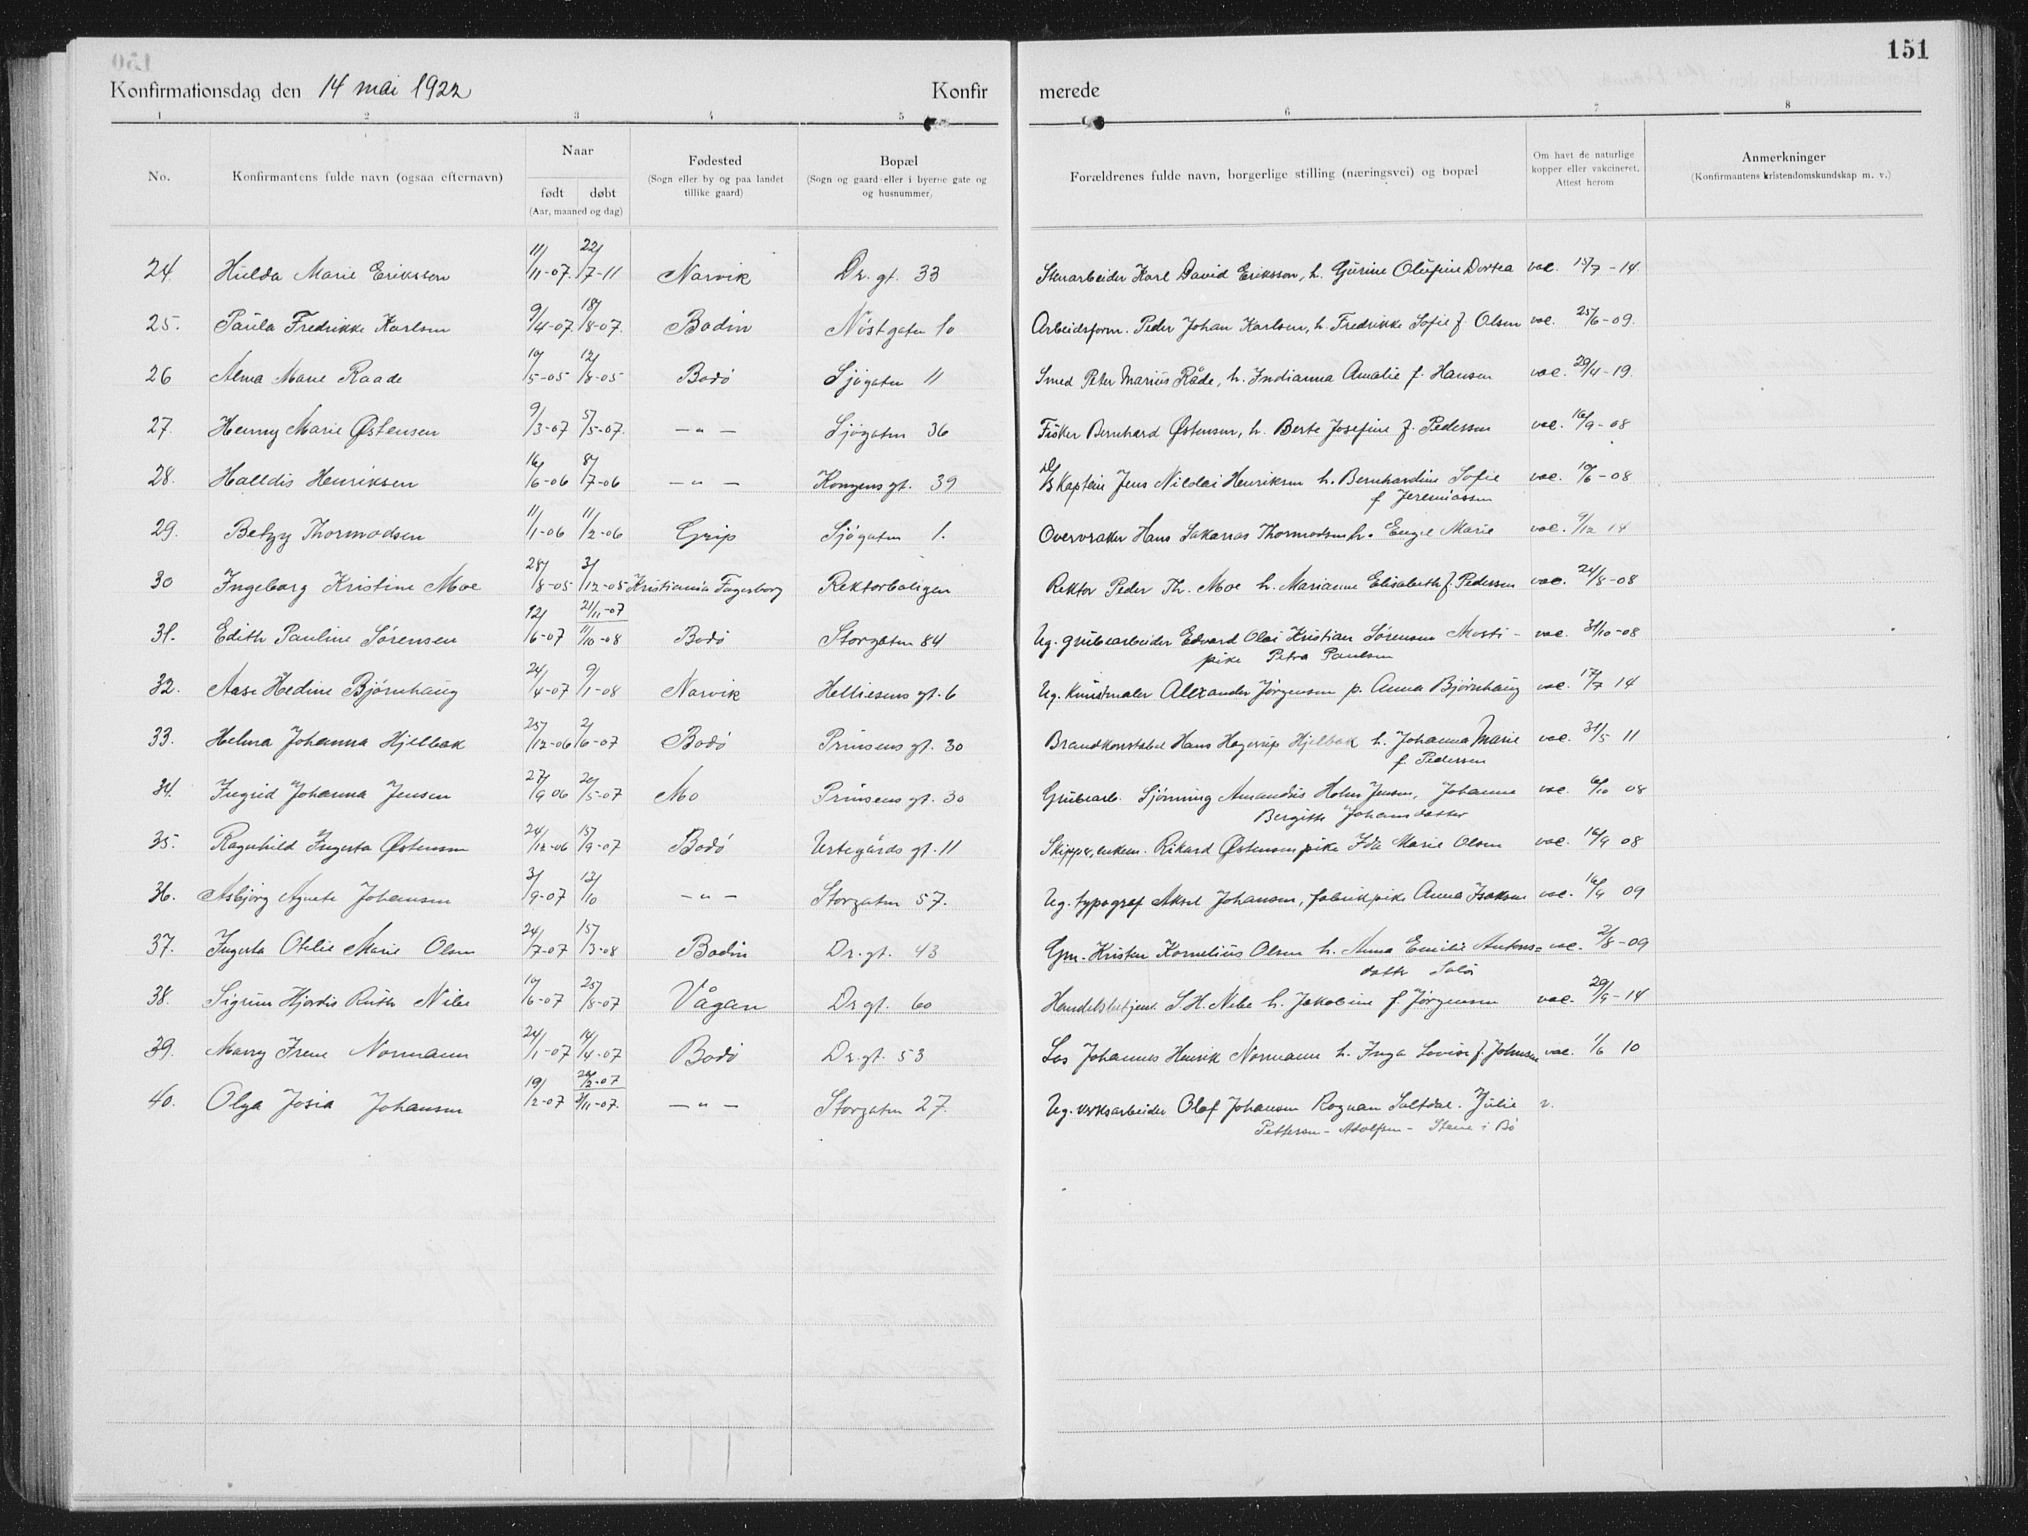 151
Konfirmationsdag den 14 mai 1922 Konfir merede
1 2 3 4 5 6 7 8
No. Konfirmantens fulde navn (ogsaa efternavn) Naar født døbt (Aar, maaned og dag) Fødested (Sogn eller by og paa landet tillike gaard) Bopæl (Sogn og gaard eller i byerne gate og og husnummer) Forældrenes fulde navn, borgerlige stilling (næringsvei) og bopæl Om havt de naturlige kopper eller vakcineret. Attest herom Anmerkninger (Konfirmantens kristendomskundskap m. v.)
24. Hulda Marie Eriksson 11/11-07. 22/7-11 Narvik Dr. gt. 33 Stenarbeider Karl David Eriksson, h. Gurine Olufine Dortea vac. 15/7-14
25. Paula Fredrikke Karlsen 9/4-07. 18/8-07. Bodin Nøstgaten 10 Arbeidsform. Peder Johan Karlsen, h. Fredrikke Sofie f Olsen vac. 25/6-09.
26 Alma Marie Raade 10/5-05 12/8-05 Bodø Sjøgaten 11 Smed Peter Marius Råde, h. Indianna Amalie f. Hansen vac. 29/4-19.
27. Henny Marie Østensen 9/3-07 5/5-07. —"— Sjøgaten 36 Fisker Bernhard Østensen, h. Berte Josefine f. Pedersen vac. 16/9-08
28. Halldis Henriksen 16/6-06 8/7-06 —"— Kongens gt. 39 Kaptein Jens Nicolai Henriksen h. Bernhardine Sofie vac. 10/6-08
f Jeremiassen
29. Betzy Thormodsen 11/1-06 11/2-06 Grip Sjøgaten 1. Overvraker Hans Sakarias Thormodsen h. Engel Marie vac. 9/12 14
30 Ingeborg Kristine Moe 28/8-05 3/12-05 Kristiania Fagerborg Rektorboligen Rektor Peder Th. Moe h. Marianne Elisabeth f. Pedersen vac. 24/8-08
31. Edith Pauline Sørensen 12/6-07 21/11-07 11/10-08 Bodø Storgaten 84 Ug. grubearbeider Edvard Olai Kristian Sørensen Mosti- vac. 31/10-08
pike Petra Paulsen
32. Aase Hedine Bjørnhaug 24/4-07 9/1-08 Narvik Helliesens gt. 6 Ug. Kunstmaler Alexander Jørgensen p. Anna Bjørnhaug vac. 17/7 14
33. Helma Johanna Hjelbak 25/12-06 2/6-07 Bodø Prinsens gt. 30 Brandkonstabel Hans Hagerup Hjelbak h. Johanna Marie vac. 31/5 11
f. Pedersen
34. Ingrid Johanna Jensen 27/9 06 20/5-07 Mo Prinsens gt. 30 Grubearb. Sjønning Amandus Holm Jensen, Johanna vac. 6/10 08
Bergitte Johansdatter
35. Ragnhild Ingerta Østensen 24/12-06 15/9-07 Bodø Urtegårds gt. 11 Skipper, enkem. Rikard Østensen pike Ida Marie Olsen vac. 16/9 08
36. Asbjørg Agnete Johansen 3/9-07 13/10 —"— Storgaten 57. Ug. typograf Aksel Johansen, fabrikpike Anna Isaksen vac. 16/9 09
37. Ingerta Otelie Marie Olsen 24/7-07 15/3-08 Bodin Dr. gt. 43 Gm. Kristen Kornelius Olsen h. Anna Emilie Antons= vac. 2/8-09
datter
38. Sigrun Hjordis Ruth Nibe 10/6-07 25/8-07 Vågan Dr gt. 60 Handelsbetjent S. H. Nibe h. Jakobine f. Jørgensen vac. 29/9-14
39. Marry Irene Normann 24/1-07 14/4-07 Bodø Dr. gt. 53 Los Johannes Henrik Normann h. Inga Lovise f. Johnsen vac. 1/6 10
40. Olga Josia Johansen 19/2-07 3/11-07. —"— Storgaten 27. Ug. verksarbeider Olaf Johansen Rognan Saltdal. Julie v.
Petterson - Adolfsen - Steine i Bø